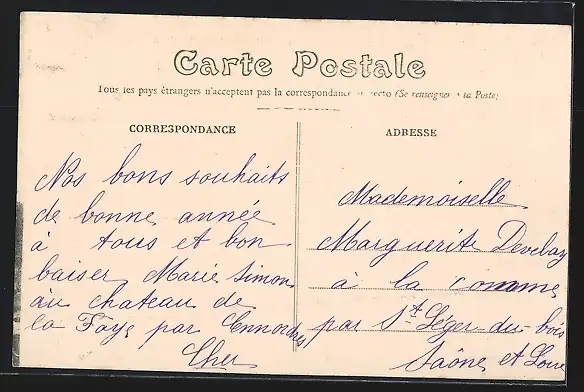 Carte Postale
Tous les pays étrangers n'acceptent pas la correspondance au recto (Se renseigner à la Poste)
CORRESPONDANCE
Nos bons souhaits
de bonne année
à tous et bon
baiser Marie Simon
au chateau de
la Faye par Ennordres
Cher
ADRESSE
Mademoiselle
Marguerite Develay
à la comme
par St Léger du bois
Saône et Loire